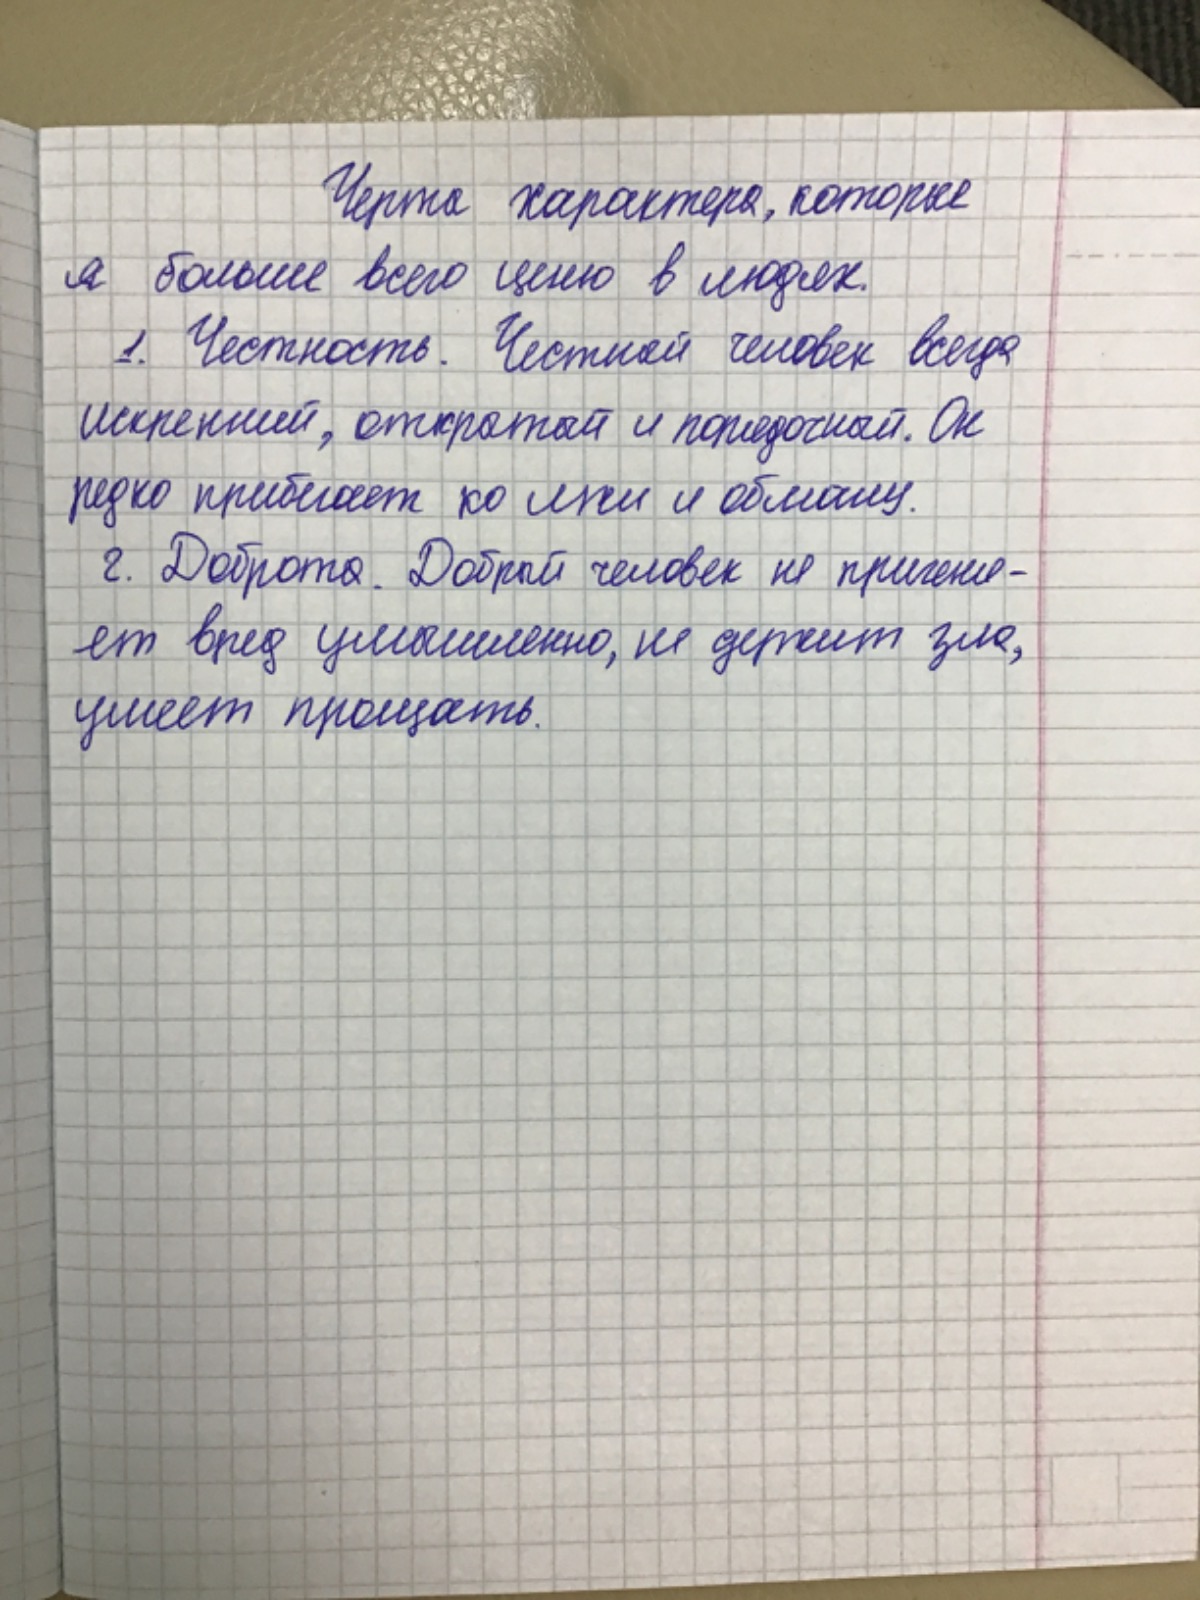 Черта характера, которые
я больше всего ценю в людях.
1. Честность. Честный человек всегда
искренний, открытый и порядочный. Он
редко прибегает ко лжи и обману.
2. Доброта. Добрый человек не причиня-
ет вред умышленно, не держит зла,
умеет прощать.